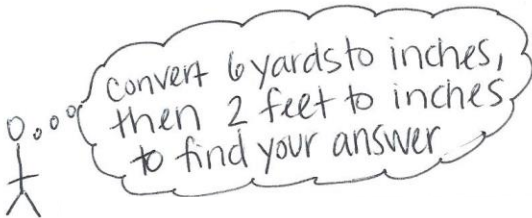 convert 6 yards to inches,
then 2 feet to inches
to find your answer